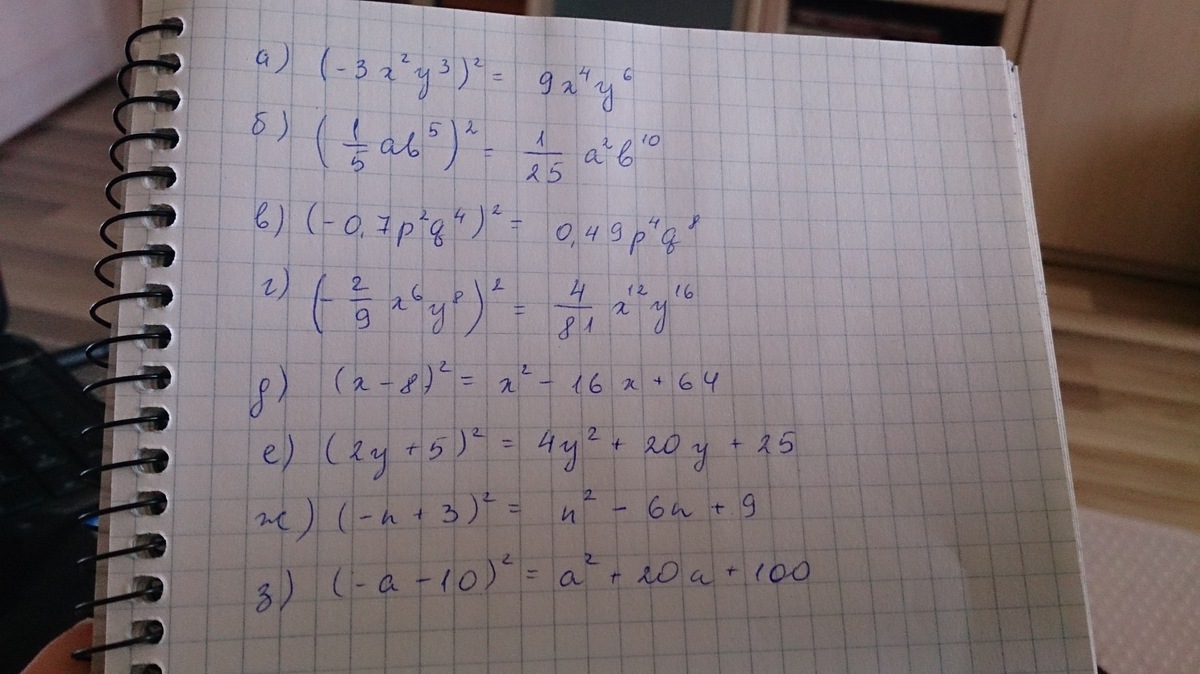 а) (-3x²y³)² = 9x⁴y⁶
б) (1/5 ab⁵)² = 1/25 a²b¹⁰
в) (-0,7p²q⁴)² = 0,49p⁴q⁸
г) (-2/9 x⁶y⁸)² = 4/81 x¹²y¹⁶
д) (x-8)² = x² - 16x + 64
е) (2y+5)² = 4y² + 20y + 25
ж) (-n+3)² = n² - 6n + 9
з) (-a-10)² = a² + 20a + 100